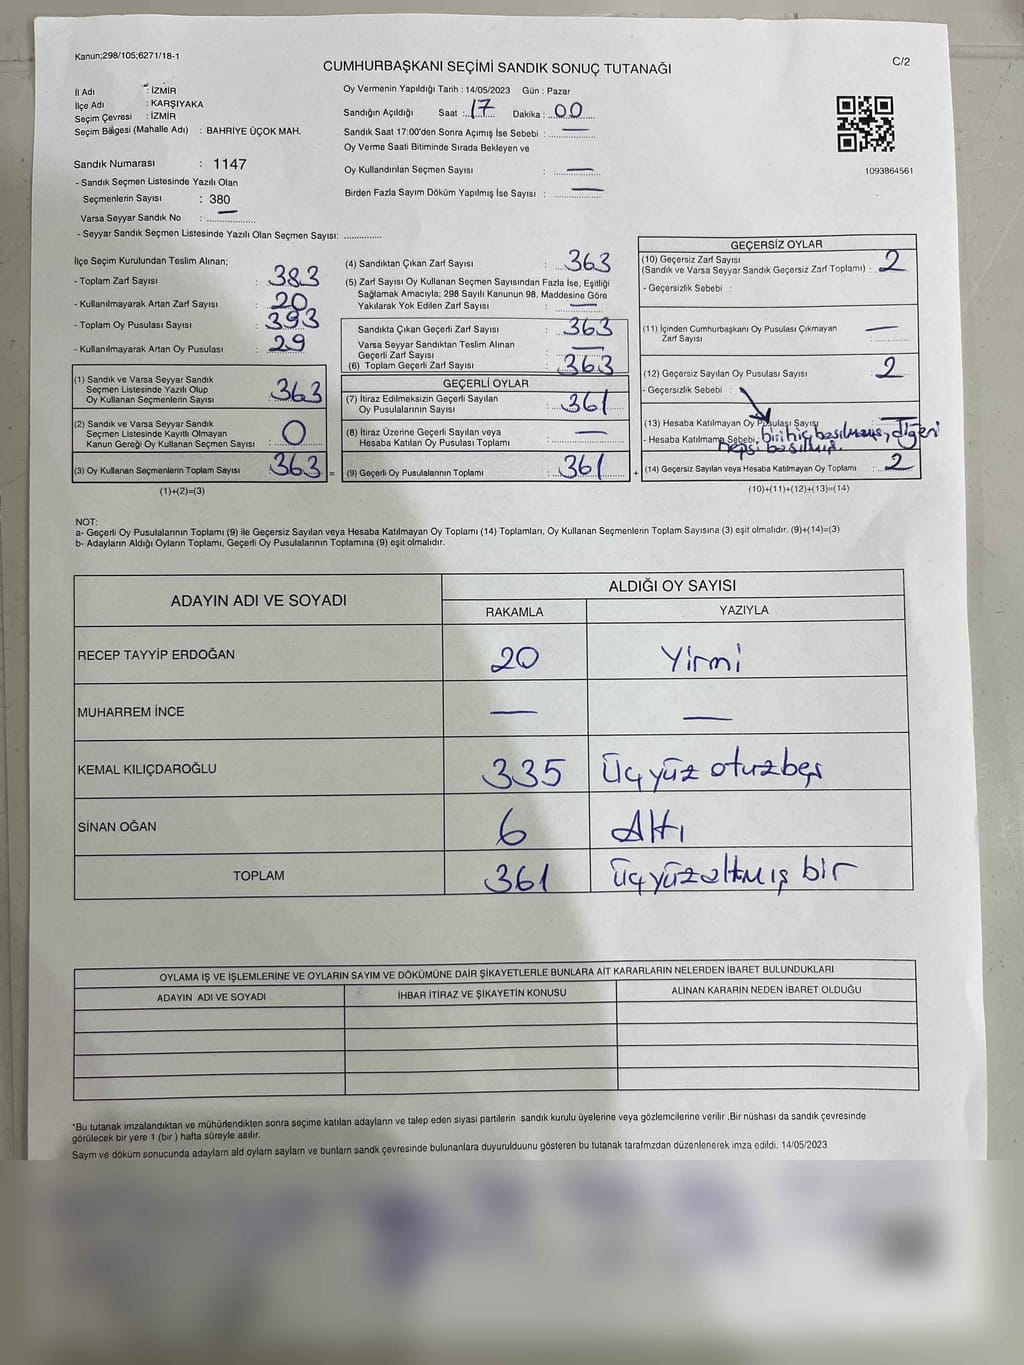 Kanun;298/105;6271/18-1
C/2
CUMHURBAŞKANI SEÇİMİ SANDIK SONUÇ TUTANAĞI
İl Adı : İZMİR
İlçe Adı : KARŞIYAKA
Seçim Çevresi : İZMİR
Seçim Bölgesi (Mahalle Adı) : BAHRİYE ÜÇOK MAH.
Sandık Numarası : 1147
- Sandık Seçmen Listesinde Yazılı Olan
Seçmenlerin Sayısı : 380
Varsa Seyyar Sandık No : —
- Seyyar Sandık Seçmen Listesinde Yazılı Olan Seçmen Sayısı: ..............
Oy Vermenin Yapıldığı Tarih : 14/05/2023 Gün : Pazar
Sandığın Açıldığı Saat : 17 Dakika : 00
Sandık Saat 17:00'den Sonra Açımış İse Sebebi : —
Oy Verme Saati Bitiminde Sırada Bekleyen ve
Oy Kullandırılan Seçmen Sayısı : —
Birden Fazla Sayım Döküm Yapılmış İse Sayısı : —
1093864561
İlçe Seçim Kurulundan Teslim Alınan;
- Toplam Zarf Sayısı : 383
- Kullanılmayarak Artan Zarf Sayısı : 20
- Toplam Oy Pusulası Sayısı : 393
- Kullanılmayarak Artan Oy Pusulası : 29
(1) Sandık ve Varsa Seyyar Sandık
Seçmen Listesinde Yazılı Olup
Oy Kullanan Seçmenlerin Sayısı : 363
(2) Sandık ve Varsa Seyyar Sandık
Seçmen Listesinde Kayıtlı Olmayan
Kanun Gereği Oy Kullanan Seçmen Sayısı : 0
(3) Oy Kullanan Seçmenlerin Toplam Sayısı : 363
(1)+(2)=(3)
=
(4) Sandıktan Çıkan Zarf Sayısı : 363
(5) Zarf Sayısı Oy Kullanan Seçmen Sayısından Fazla İse, Eşitliği
Sağlamak Amacıyla; 298 Sayılı Kanunun 98. Maddesine Göre
Yakılarak Yok Edilen Zarf Sayısı : —
Sandıkta Çıkan Geçerli Zarf Sayısı : 363
Varsa Seyyar Sandıktan Teslim Alınan
Geçerli Zarf Sayısı : —
(6) Toplam Geçerli Zarf Sayısı : 363
GEÇERLİ OYLAR
(7) İtiraz Edilmeksizin Geçerli Sayılan
Oy Pusulalarının Sayısı : 361
(8) İtiraz Üzerine Geçerli Sayılan veya
Hesaba Katılan Oy Pusulası Toplamı : —
(9) Geçerli Oy Pusulalarının Toplamı : 361
+
GEÇERSİZ OYLAR
(10) Geçersiz Zarf Sayısı
(Sandık ve Varsa Seyyar Sandık Geçersiz Zarf Toplamı) : 2
- Geçersizlik Sebebi :
(11) İçinden Cumhurbaşkanı Oy Pusulası Çıkmayan
Zarf Sayısı : —
(12) Geçersiz Sayılan Oy Pusulası Sayısı : 2
- Geçersizlik Sebebi :
(13) Hesaba Katılmayan Oy Pusulası Sayısı —
- Hesaba Katılmama Sebebi, biri hiç basılmamış, diğeri
hepsi basılmış.
(14) Geçersiz Sayılan veya Hesaba Katılmayan Oy Toplamı : 2
(10)+(11)+(12)+(13)=(14)
NOT:
a- Geçerli Oy Pusulalarının Toplamı (9) ile Geçersiz Sayılan veya Hesaba Katılmayan Oy Toplamı (14) Toplamları, Oy Kullanan Seçmenlerin Toplam Sayısına (3) eşit olmalıdır. (9)+(14)=(3)
b- Adayların Aldığı Oyların Toplamı, Geçerli Oy Pusulalarının Toplamına (9) eşit olmalıdır.
ADAYIN ADI VE SOYADI
ALDIĞI OY SAYISI
RAKAMLA YAZIYLA
RECEP TAYYİP ERDOĞAN 20 Yirmi
MUHARREM İNCE — —
KEMAL KILIÇDAROĞLU 335 Üçyüz otuzbeş
SİNAN OĞAN 6 Altı
TOPLAM 361 Üçyüzaltmış bir
OYLAMA İŞ VE İŞLEMLERİNE VE OYLARIN SAYIM VE DÖKÜMÜNE DAİR ŞİKAYETLERLE BUNLARA AİT KARARLARIN NELERDEN İBARET BULUNDUKLARI
ADAYIN ADI VE SOYADI İHBAR İTİRAZ VE ŞİKAYETİN KONUSU ALINAN KARARIN NEDEN İBARET OLDUĞU
*Bu tutanak imzalandıktan ve mühürlendikten sonra seçime katılan adayların ve talep eden siyasi partilerin sandık kurulu üyelerine veya gözlemcilerine verilir .Bir nüshası da sandık çevresinde
görülecek bir yere 1 (bir ) hafta süreyle asılır.
Saym ve döküm sonucunda adaylarn ald oylarn saylarn ve bunlarn sandk çevresinde bulunanlara duyurulduunu gösteren bu tutanak tarafmzdan düzenlenerek imza edildi. 14/05/2023